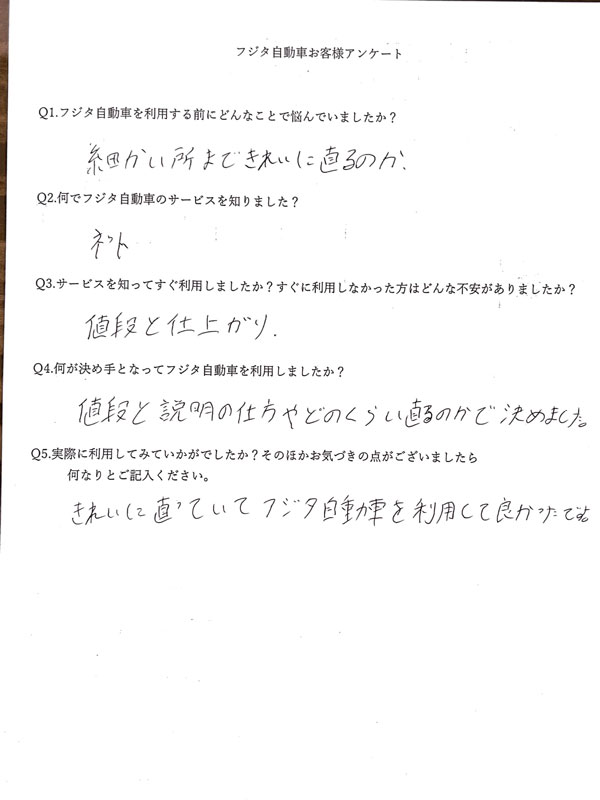 フジタ自動車お客様アンケート
Q1.フジタ自動車を利用する前にどんなことで悩んでいましたか？
細かい所まできれいに直るのか.
Q2.何でフジタ自動車のサービスを知りました？
ネット
Q3.サービスを知ってすぐ利用しましたか？すぐに利用しなかった方はどんな不安がありましたか？
値段と仕上がり.
Q4.何が決め手となってフジタ自動車を利用しましたか？
値段と説明の仕方やどのくらい直るのかで決めました。
Q5.実際に利用してみていかがでしたか？そのほかお気づきの点がございましたら
何なりとご記入ください。
きれいに直っていてフジタ自動車を利用して良かったです。